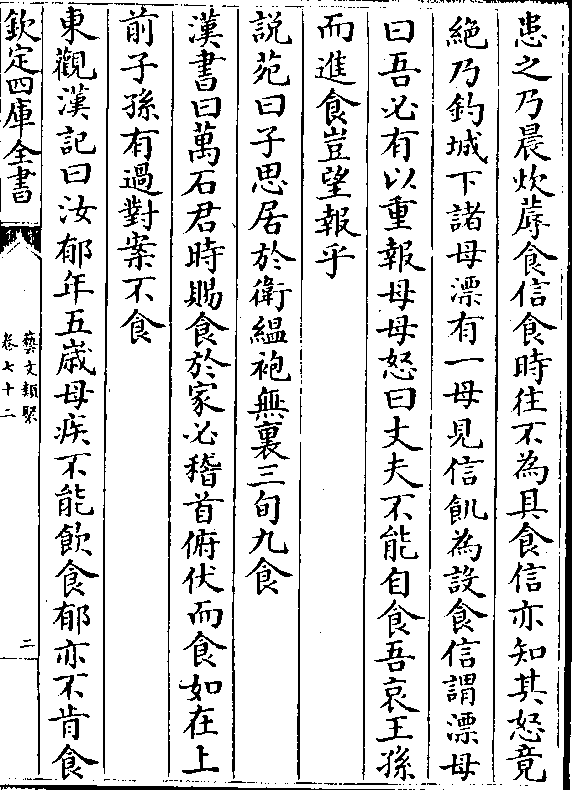 患之乃晨炊蓐食信食時往不為具食信亦知其怒竟
絶乃釣城下諸母漂有一母見信飢為設食信謂漂母
曰吾必有以重報母母怒曰丈夫不能自食吾哀王孫
而進食豈望報乎
説苑曰子思居於衛緼袍無裏三旬九食
漢書曰萬石君時賜食於家必稽首俯伏而食如在上
前子孫有過對案不食
東觀漢記曰汝郁年五歲母疾不能飲食郁亦不肯食
欽定四庫全書
藝文類聚
卷七十二
二